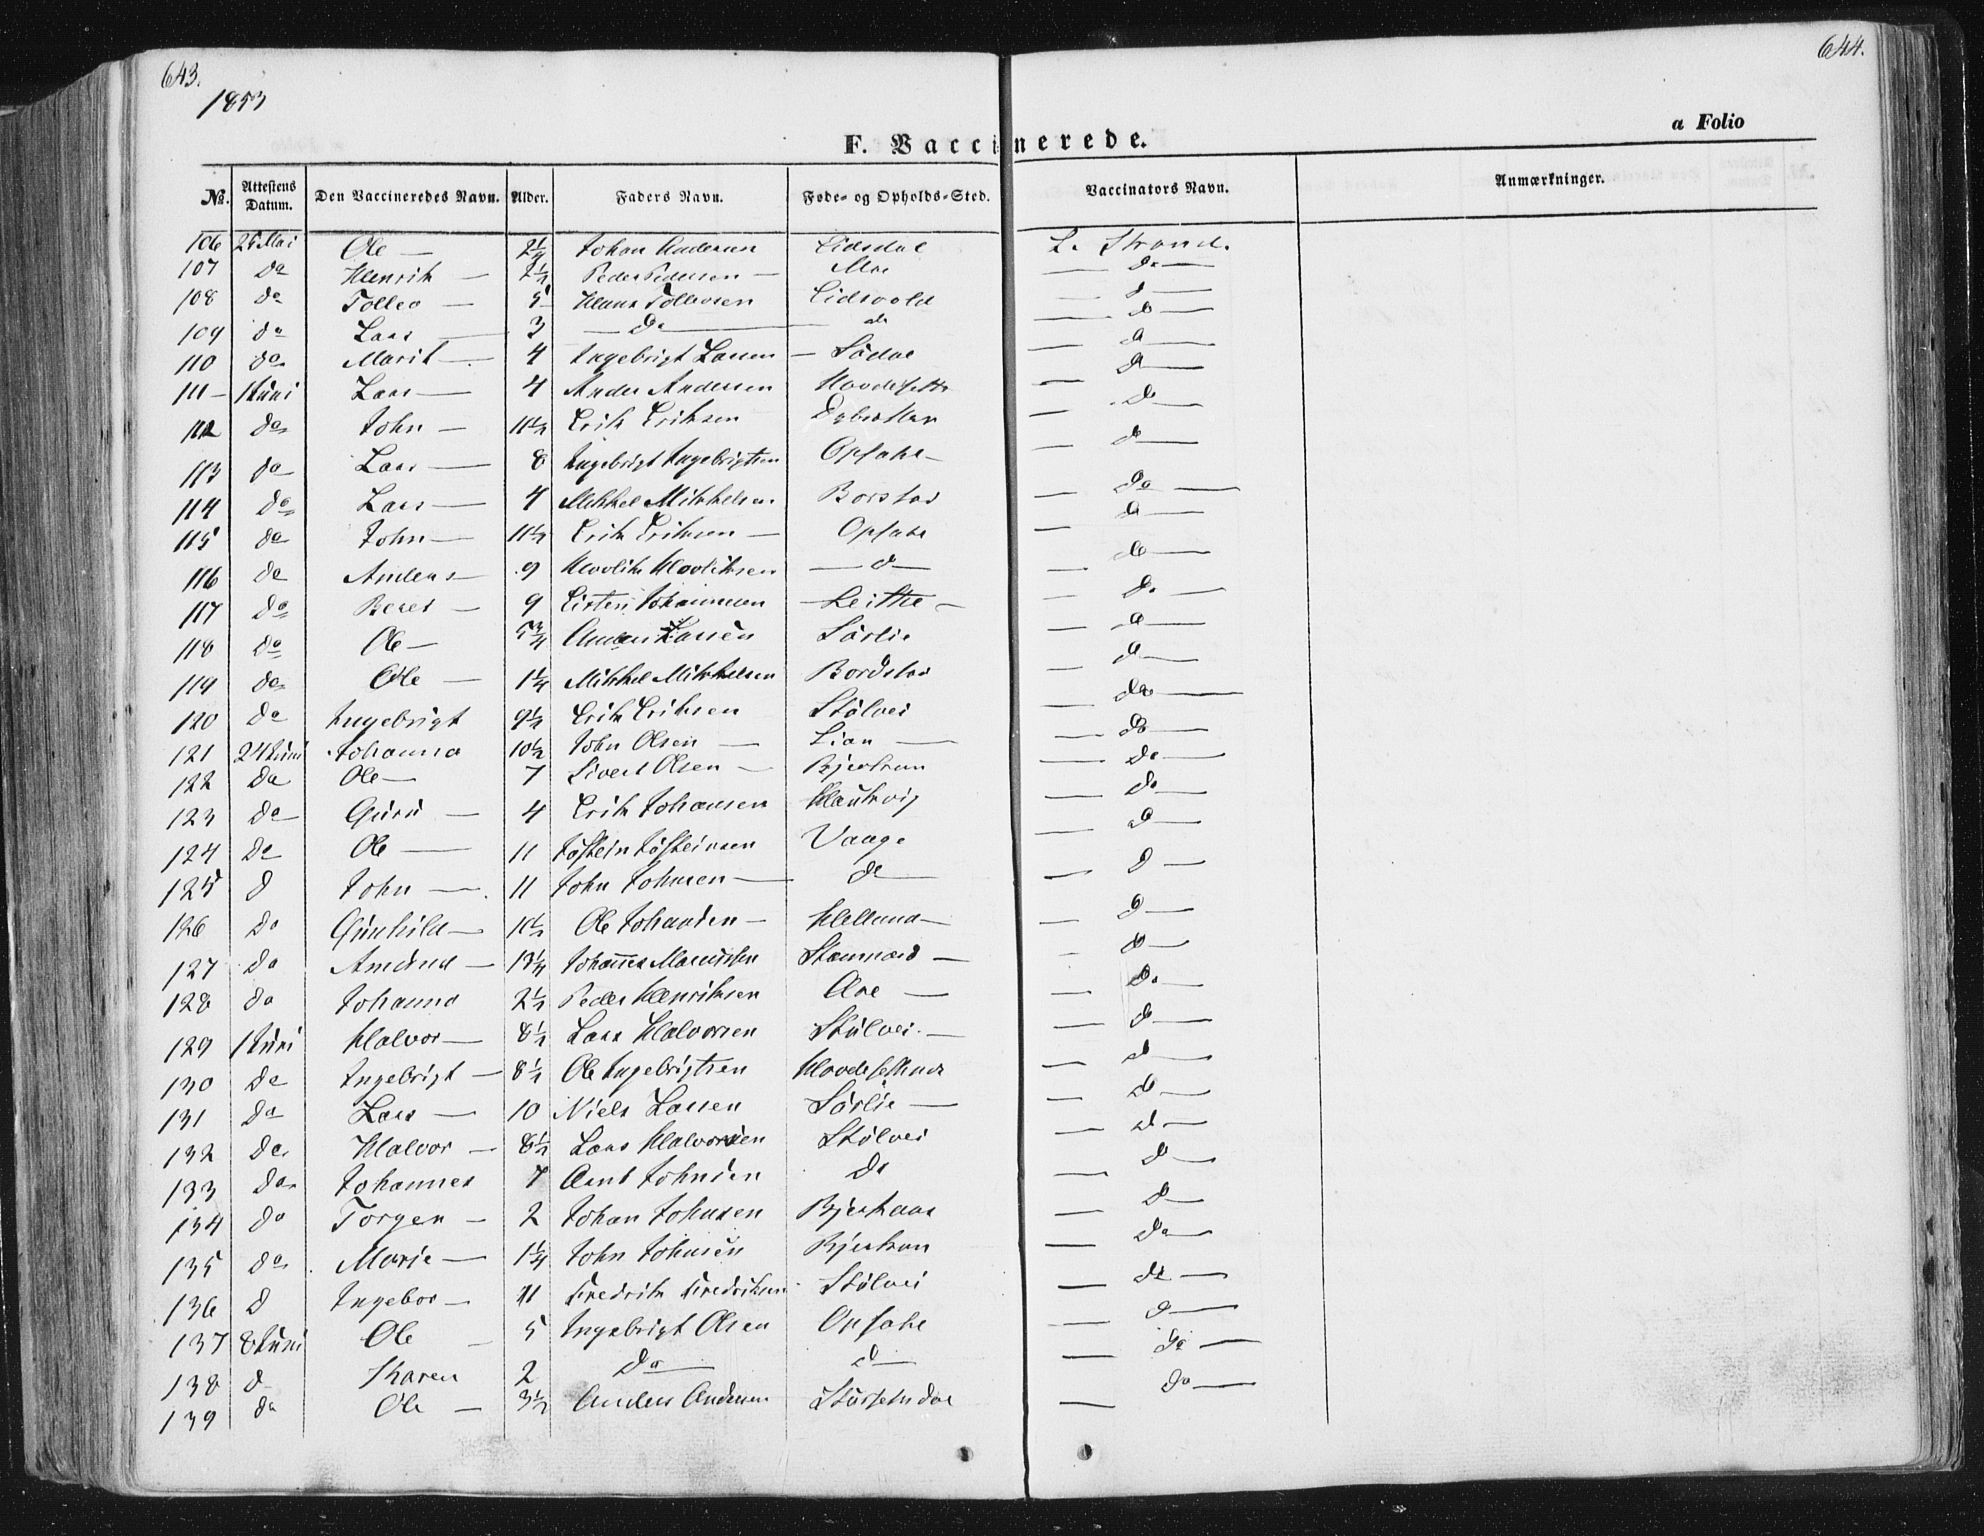 643.
644.
1853
a Folio
F. Vaccinerede.
No. Attestens Datum. Den Vaccineredes Navn. Alder. Faders Navn. Føde- og Opholds-Sted. Vaccinators Navn. Anmærkninger.
106 Mai Ole — Johan Andersen L. Strand.
107 do Henrik — 2½ Peder Pedersen — Moe — do —
108 do Tollev — 5 Hans Tollevsen Eidsvold — do —
109 do Lars — 3 — do — do — do —
110 do Marit — 4 Ingebrigt Larsen — — do —
111 — 1 Juni Lars — 4 Andersen — do —
112 do John — 11½ Erik Eriksen — do —
113 do Lars — 8 Ingebrigt Ingebrigtsen Opsahl — — do —
114 do Lars — 4 Mikkel Mikkelsen Borstad — do —
115 do John — 11½ Erik Eriksen — Opsahl — do —
116 do Anders — 9 — do — — do —
117 do — 9 Johannesen — Leithe — — do —
118 do Ole — 5¾ Anders Larsen Sørlie — do —
119 do Ole — 1¼ Mikkel Mikkelsen Bordstad — do —
120 do Ingebrigt 9½ Erik Eriksen Stølvei — do —
121 24 Juni Johanna 10½ John Olsen — Lian — — do —
122 do Ole — 7 Sivert Olsen — — do —
123 do Guru — 4 Erik Johansen — do —
124 do Ole — 11 Jøstein Jøsteinsen Vaage — do —
125 d John — 11 John Johnsen — do — — do —
126 do Gunhild — 10½ Ole Johansen — Helland — — do —
127 do Amund — 13¼ Johannes — — do —
128 do Johanna 2½ Peder Henriksen Aae — — do —
129 1 Juni Halvor — 8½ Lars Halvorsen Stølvei — — do —
130 do Ingebrigt — 8½ Ole Ingebrigtsen — do —
131 do Lars — 10 Niels Larsen Sørlie — — do —
132 do Halvor — 8½ Lars Halvorsen Stølvei — do —
133 do Johannes 7 Arnt Johnsen do — do —
134 do Jørgen — 2 Johan Johnsen — do —
135 do Marie — 1¼ John Johnsen — do —
136 d Ingebor — 11 Fredrik Fredriksen Stølvei — do —
137 8 Juni Ole — 5 Ingebrigt Olsen Opsahl — do —
138 d Karen 2 do — d — — do —
139 do Ole — 3½ Anders Andersen — do —